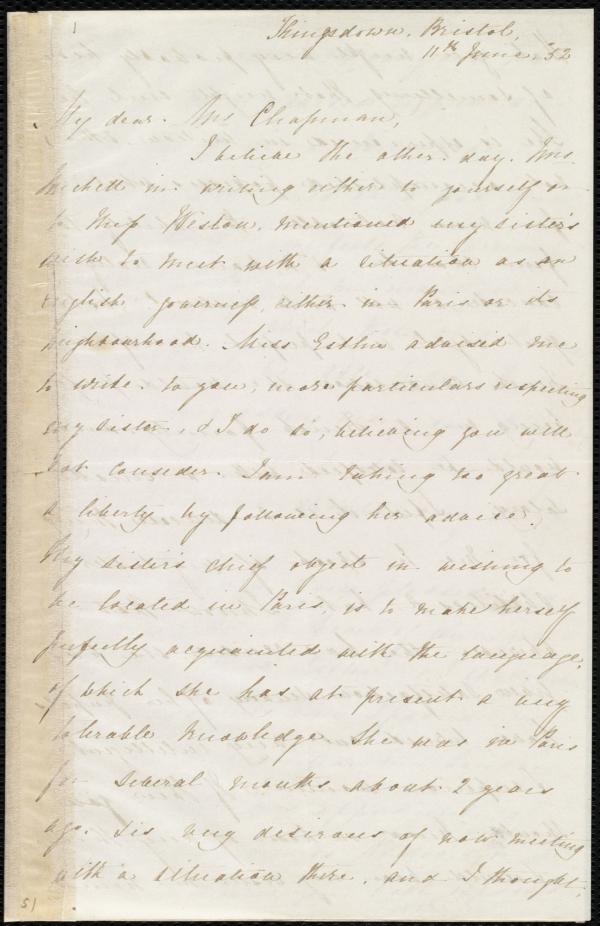 1
Kingsdown, Bristol,
11th June. 52
My dear Mrs Chapman,
I believe the other day, Mrs.
Michell in writing either to yourself or
to Miss Weston, mentioned my sister's
wish to meet with a situation as an
English governess, either in Paris or its
neighbourhood. Miss Estlin advised me
to write to you, more particulars respecting
my sister, & I do so, believing you will
not consider I am taking too great
a liberty by following her advice.
My sister's chief object in wishing to
be located in Paris, is to make herself
perfectly acquainted with the language,
of which she has at present a very
tolerable knowledge. She was in Paris
for several months about 2 years
ago. Is very desirous of now meeting
with a situation there, and I thought,
51